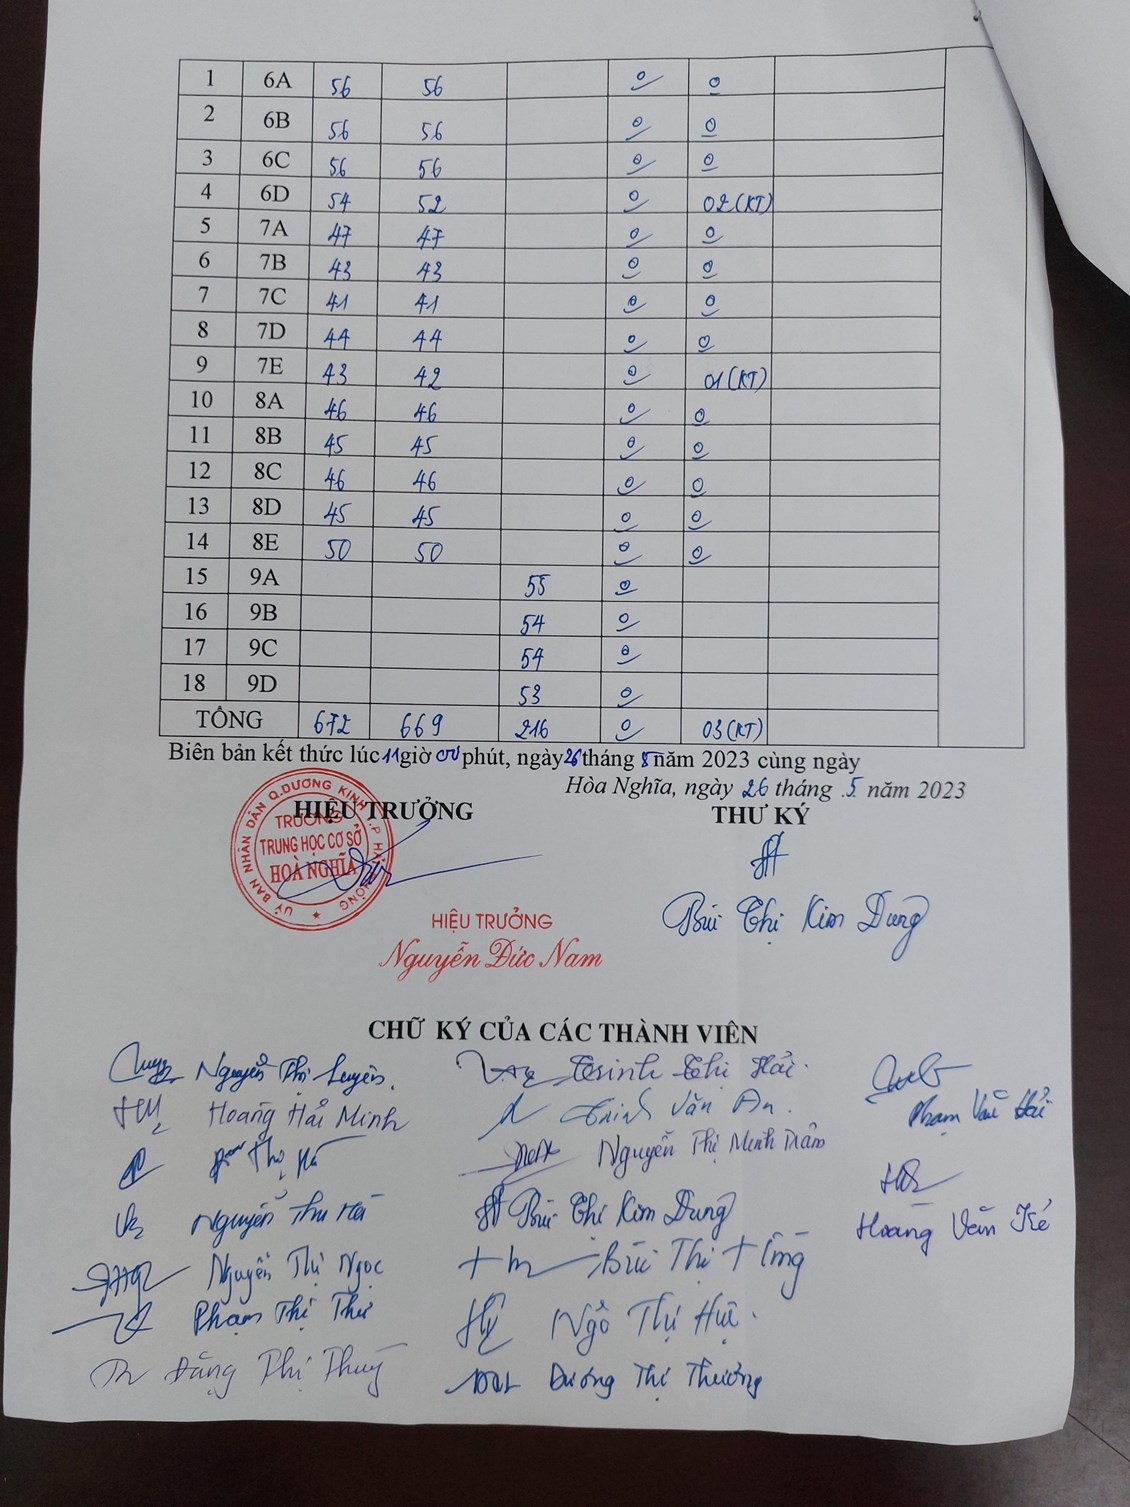 1 6A 56 56 0 0
2 6B 56 56 0 0
3 6C 56 56 0 0
4 6D 54 52 0 02 (KT)
5 7A 47 47 0 0
6 7B 43 43 0 0
7 7C 41 41 0 0
8 7D 44 44 0 0
9 7E 43 42 0 01 (KT)
10 8A 46 46 0 0
11 8B 45 45 0 0
12 8C 46 46 0 0
13 8D 45 45 0 0
14 8E 50 50 0 0
15 9A 55 0
16 9B 54 0
17 9C 54 0
18 9D 53 0
TỔNG 672 669 216 0 03 (KT)
Biên bản kết thúc lúc 11 giờ 00 phút, ngày 26 tháng 5 năm 2023 cùng ngày
Hòa Nghĩa, ngày 26 tháng .5. năm 2023
HIỆU TRƯỞNG THƯ KÝ
ỦY BAN NHÂN DÂN Q.DƯƠNG KINH T.P HẢI PHÒNG
TRƯỜNG
TRUNG HỌC CƠ SỞ
HOÀ NGHĨA
Bùi Thị Kim Dung
HIỆU TRƯỞNG
Nguyễn Đức Nam
CHỮ KÝ CỦA CÁC THÀNH VIÊN
Nguyễn Thị Luyên. Trịnh Thị Hải.
Hoàng Hải Minh Trịnh Văn An. Phạm Văn Hải
Thị Hà Nguyễn Thị Minh Trâm
Nguyễn Thu Hà Bùi Thị Kim Dung Hoàng Văn Kế
Nguyễn Thị Ngọc Bùi Thị
Phạm Thị Thư Ngô Thị Huệ.
Đặng Thị Thuý Dương Thị Thương